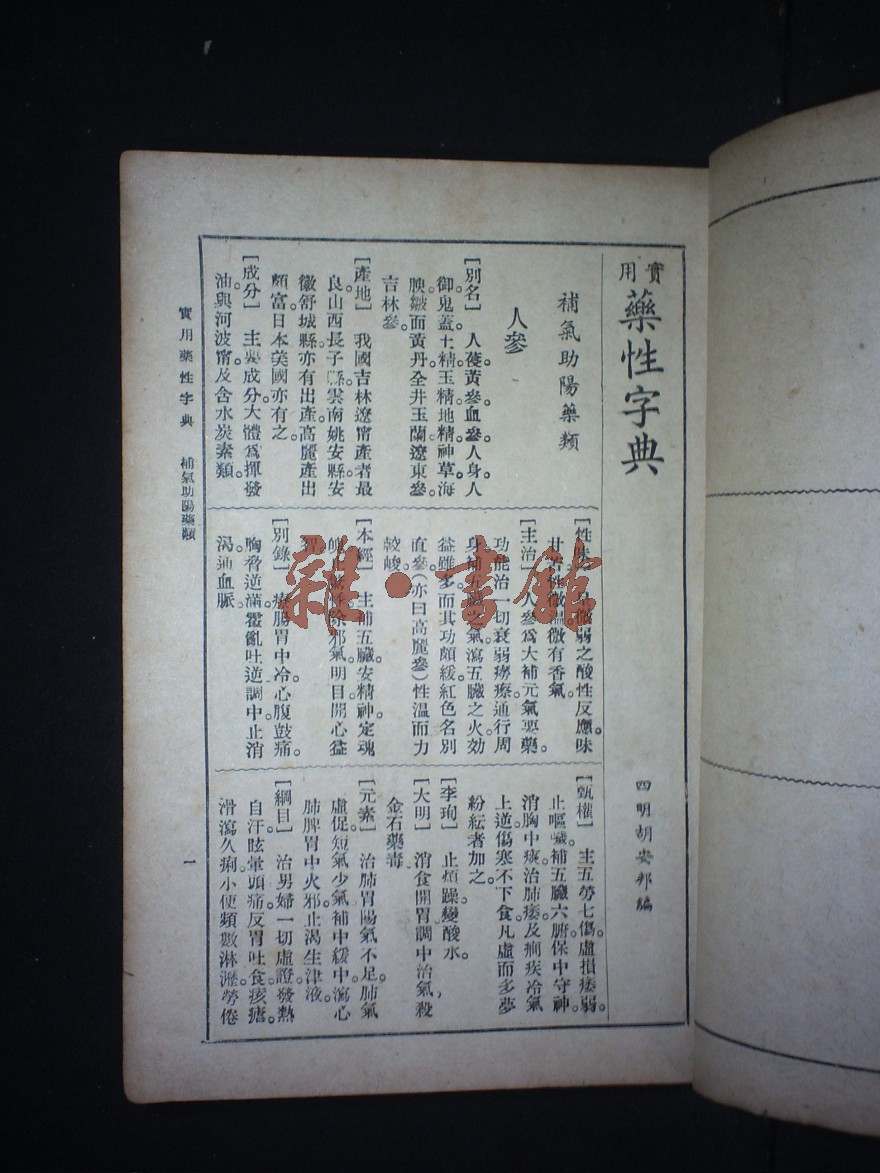 實用
藥性字典
四明胡安邦編
補氣助陽藥類
人參
[別名] 人葠。黃參。血參。人身。人
御。鬼蓋。土精。玉精。地精。神草。海
腴。皺面。黃丹。全井玉蘭。遼東參。
吉林參。
[產地] 我國吉林遼甯產者最
良。山西長子縣。雲南姚安縣。安
徽舒城縣亦有出產。高麗產出
頗富。日本美國亦有之。
[成分] 主要成分大體為揮發
油與河波甯。及含水炭素類。
[性味] 微弱之酸性反應。味
甘苦。性微溫。微有香氣。
[主治] 人參為大補元氣要藥。
功能治一切衰弱癆瘵。通行周
身。補五臟之氣。瀉五臟之火。効
益雖多。而其功頗緩。紅色名別
直參(亦曰高麗參)性溫而力
較峻。
[本經] 主補五臟。安精神。定魂
除邪氣。明目開心益
智。
[別錄] 療腸胃中冷。心腹鼓痛。
胸脅逆滿。霍亂吐逆。調中。止消
渴。通血脈。
[甄權] 主五勞七傷。虛損痿弱。
止嘔噦。補五臟六腑。保中守神。
消胸中痰。治肺痿及癇疾。冷氣
上逆。傷寒不下食。凡虛而多夢
紛紜者加之。
[李珣] 止煩躁。變酸水。
[大明] 消食開胃。調中治氣。殺
金石藥毒
[元素] 治肺胃陽氣不足。肺氣
虛促。短氣少氣。補中緩中。瀉心
肺脾胃中火邪。止渴生津液。
[綱目] 治男婦一切虛證。發熱
自汗。眩暈頭痛。反胃吐食。痎瘧。
滑瀉久痢。小便頻數淋瀝。勞倦
實用藥性字典 補氣助陽藥類
一
雜·書館